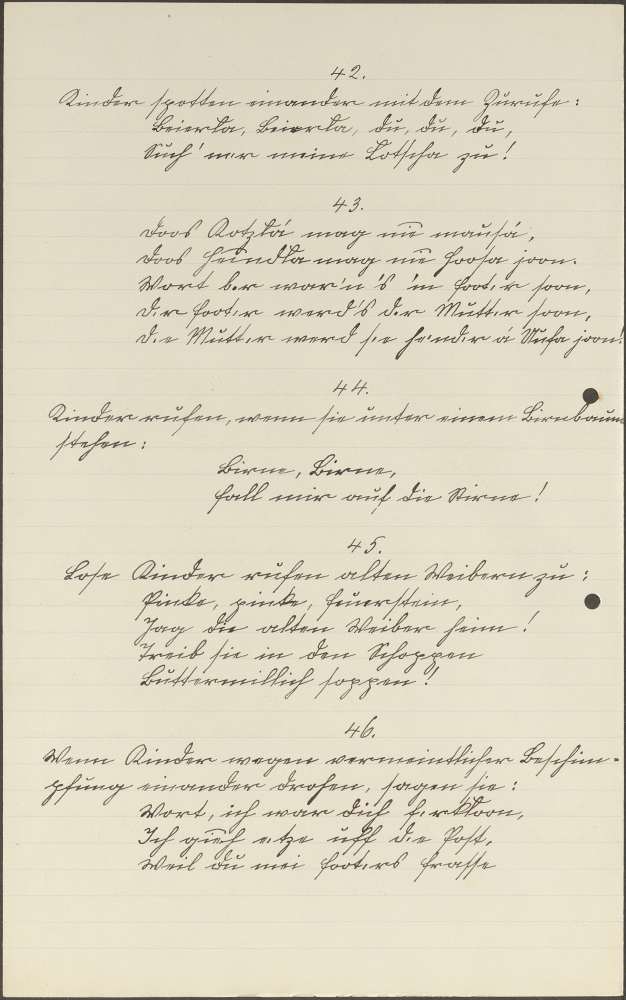 42.
Kinder spotten einander mit dem Zurufe:
Beierla, Beierla, du, du, du,
Such' mer meine Lotscha zu!
43.
Doos Kotzlá mag nie mausá,
Doos Hundla mag nie Hoosa joon.
Wort ber war'n 's 'm Footer soon,
Der Footer werd's der Mutter soon,
Die Mutter werd sie hender á Uufa joon!
44.
Kinder rufen, wenn sie unter einem Birnbaum
stehen:
Birne, Birne,
fall mir auf die Stirne!
45.
Lose Kinder rufen alten Weibern zu:
Pinke, pinke, Feuerstein,
Jag die alten Weiber heim!
Treib sie in den Schoppen
Buttermillich soppen!
46.
Wenn Kinder wegen vermeintlicher Beschim-
pfung einander drohen, sagen sie:
Wort, ich war dich ferkloon,
Ich gieh etze uff die Post,
Weil du mei Footers Frasse